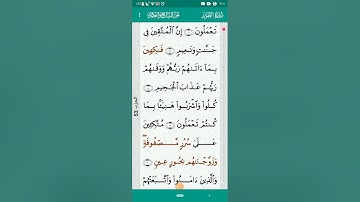 سورة الطور
تَعْمَلُونَ ١٦ إِنَّ الْمُتَّقِينَ فِي
جَنَّٰتٍ وَنَعِيمٍ ١٧ فَٰكِهِينَ
بِمَآ ءَاتَىٰهُمْ رَبُّهُمْ وَوَقَىٰهُمْ
رَبُّهُمْ عَذَابَ الْجَحِيمِ ١٨
كُلُوا۟ وَاشْرَبُوا۟ هَنِيٓـًٔۢا بِمَا
كُنتُمْ تَعْمَلُونَ ١٩ مُتَّكِـِٔينَ
عَلَىٰ سُرُرٍ مَّصْفُوفَةٍ ۖ
وَزَوَّجْنَٰهُم بِحُورٍ عِينٍ ٢٠
وَالَّذِينَ ءَامَنُوا۟ وَاتَّبَعَتْهُمْ